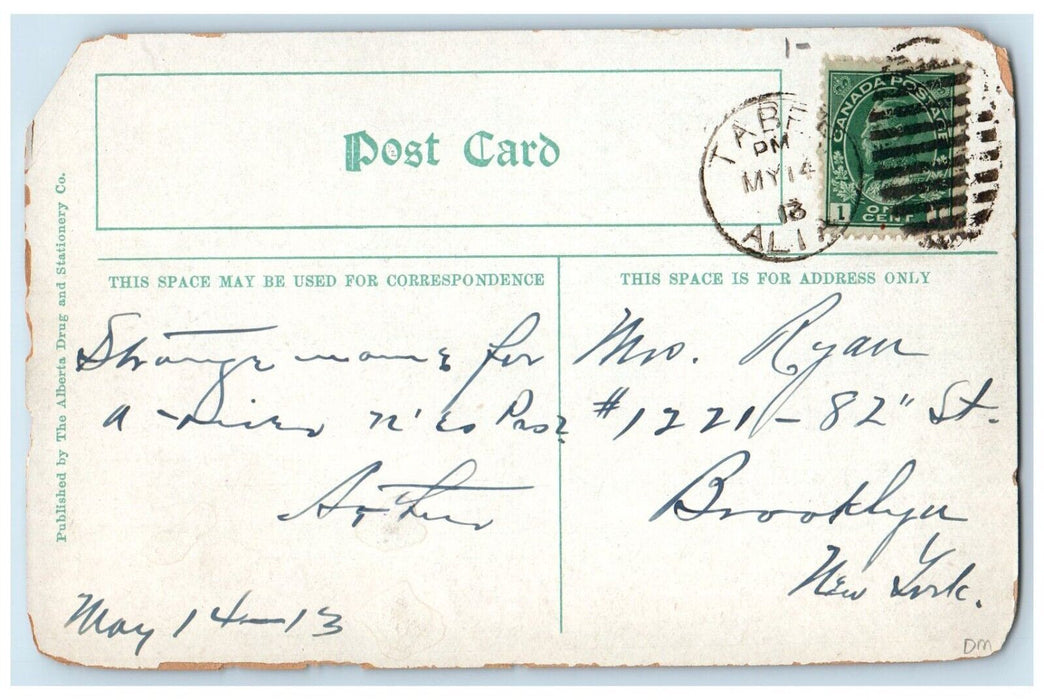 Post Card
TABE
PM
MY 14
13
AL
CANADA POSTAGE
1 ONE CENT
Published by The Alberta Drug and Stationery Co.
THIS SPACE MAY BE USED FOR CORRESPONDENCE
THIS SPACE IS FOR ADDRESS ONLY
Strange name for
a river n'es Pas?
Arthur
May 14-13
Mrs. Ryan
#1221-82" St.
Brooklyn
New York.
DM